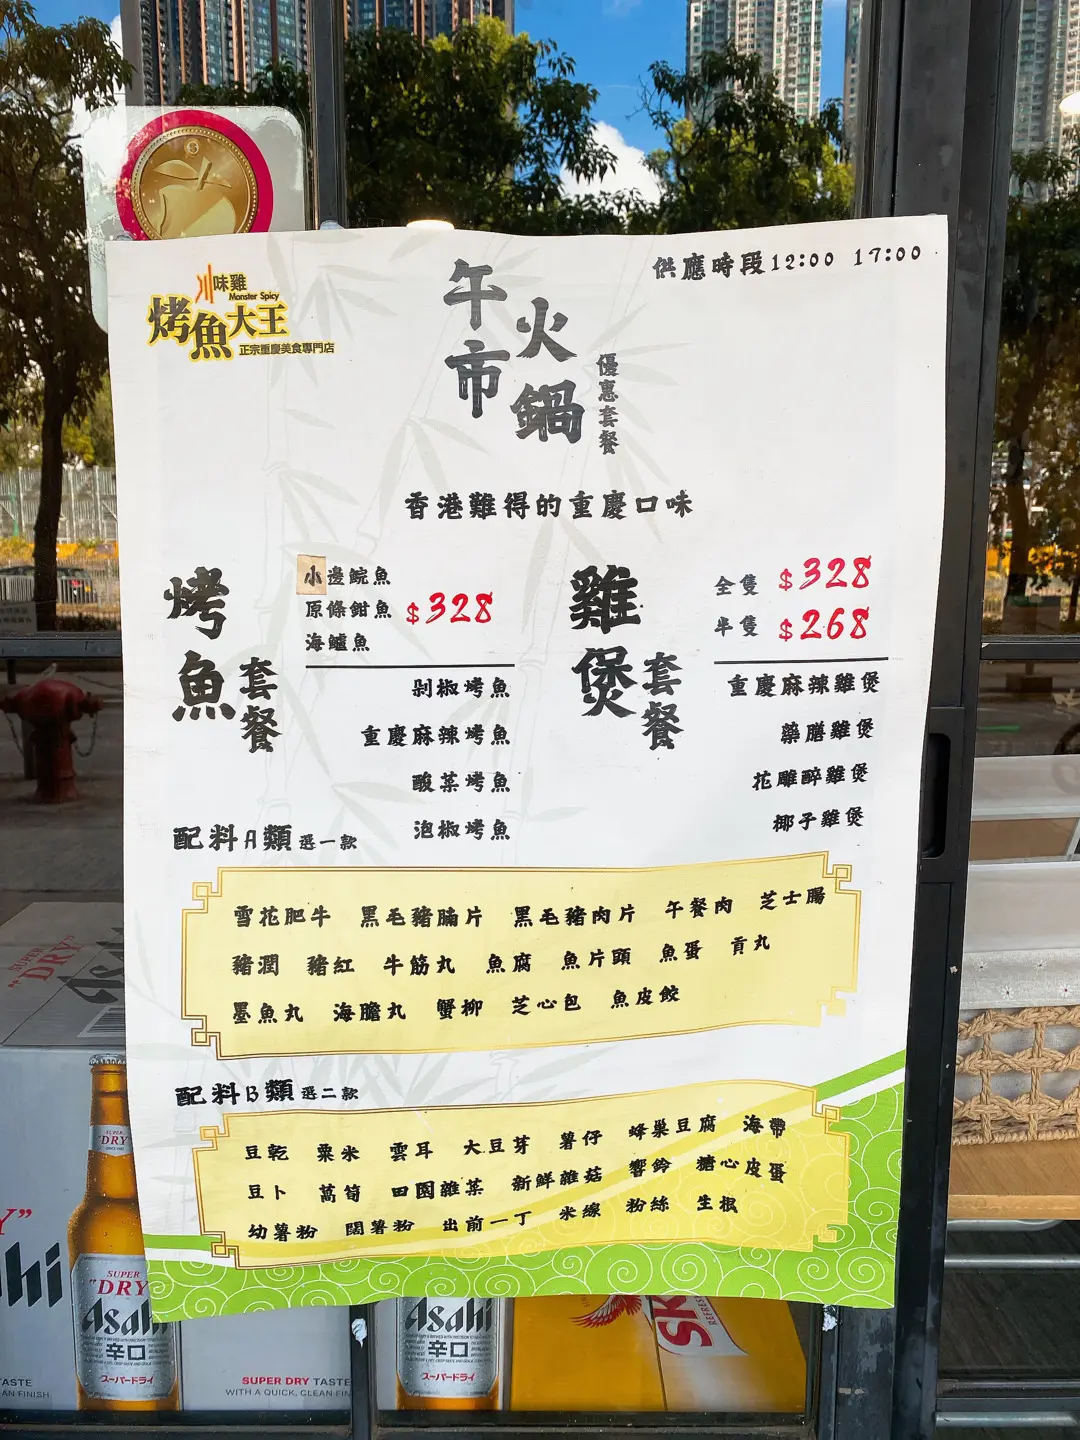 川味雞
Monster Spicy
烤魚大王
正宗重慶美食專門店
供應時段12:00 17:00
午市
火鍋
優惠套餐
香港難得的重慶口味
烤魚
套餐
小邊鯇魚
原條鉗魚
海鱸魚
$328
剁椒烤魚
重慶麻辣烤魚
酸菜烤魚
泡椒烤魚
雞煲
套餐
全隻 $328
半隻 $268
重慶麻辣雞煲
藥膳雞煲
花雕醉雞煲
椰子雞煲
配料A類 選一款
雪花肥牛 黑毛豬腩片 黑毛豬肉片 午餐肉 芝士腸
豬潤 豬紅 牛筋丸 魚腐 魚片頭 魚蛋 貢丸
墨魚丸 海膽丸 蟹柳 芝心包 魚皮餃
配料B類 選二款
豆乾 粟米 雲耳 大豆芽 薯仔 蜂巢豆腐 海帶
豆卜 萵筍 田園雜菜 新鮮雜菇 響鈴 糖心皮蛋
幼薯粉 闊薯粉 出前一丁 米線 粉絲 生根
"SUPER DRY"
SUPER
"DRY"
Asahi
辛口
スーパードライ
SUPER DRY TASTE
WITH A QUICK, CLEAN FIN
Asahi
辛口
スーパードライ
SK
REFRES